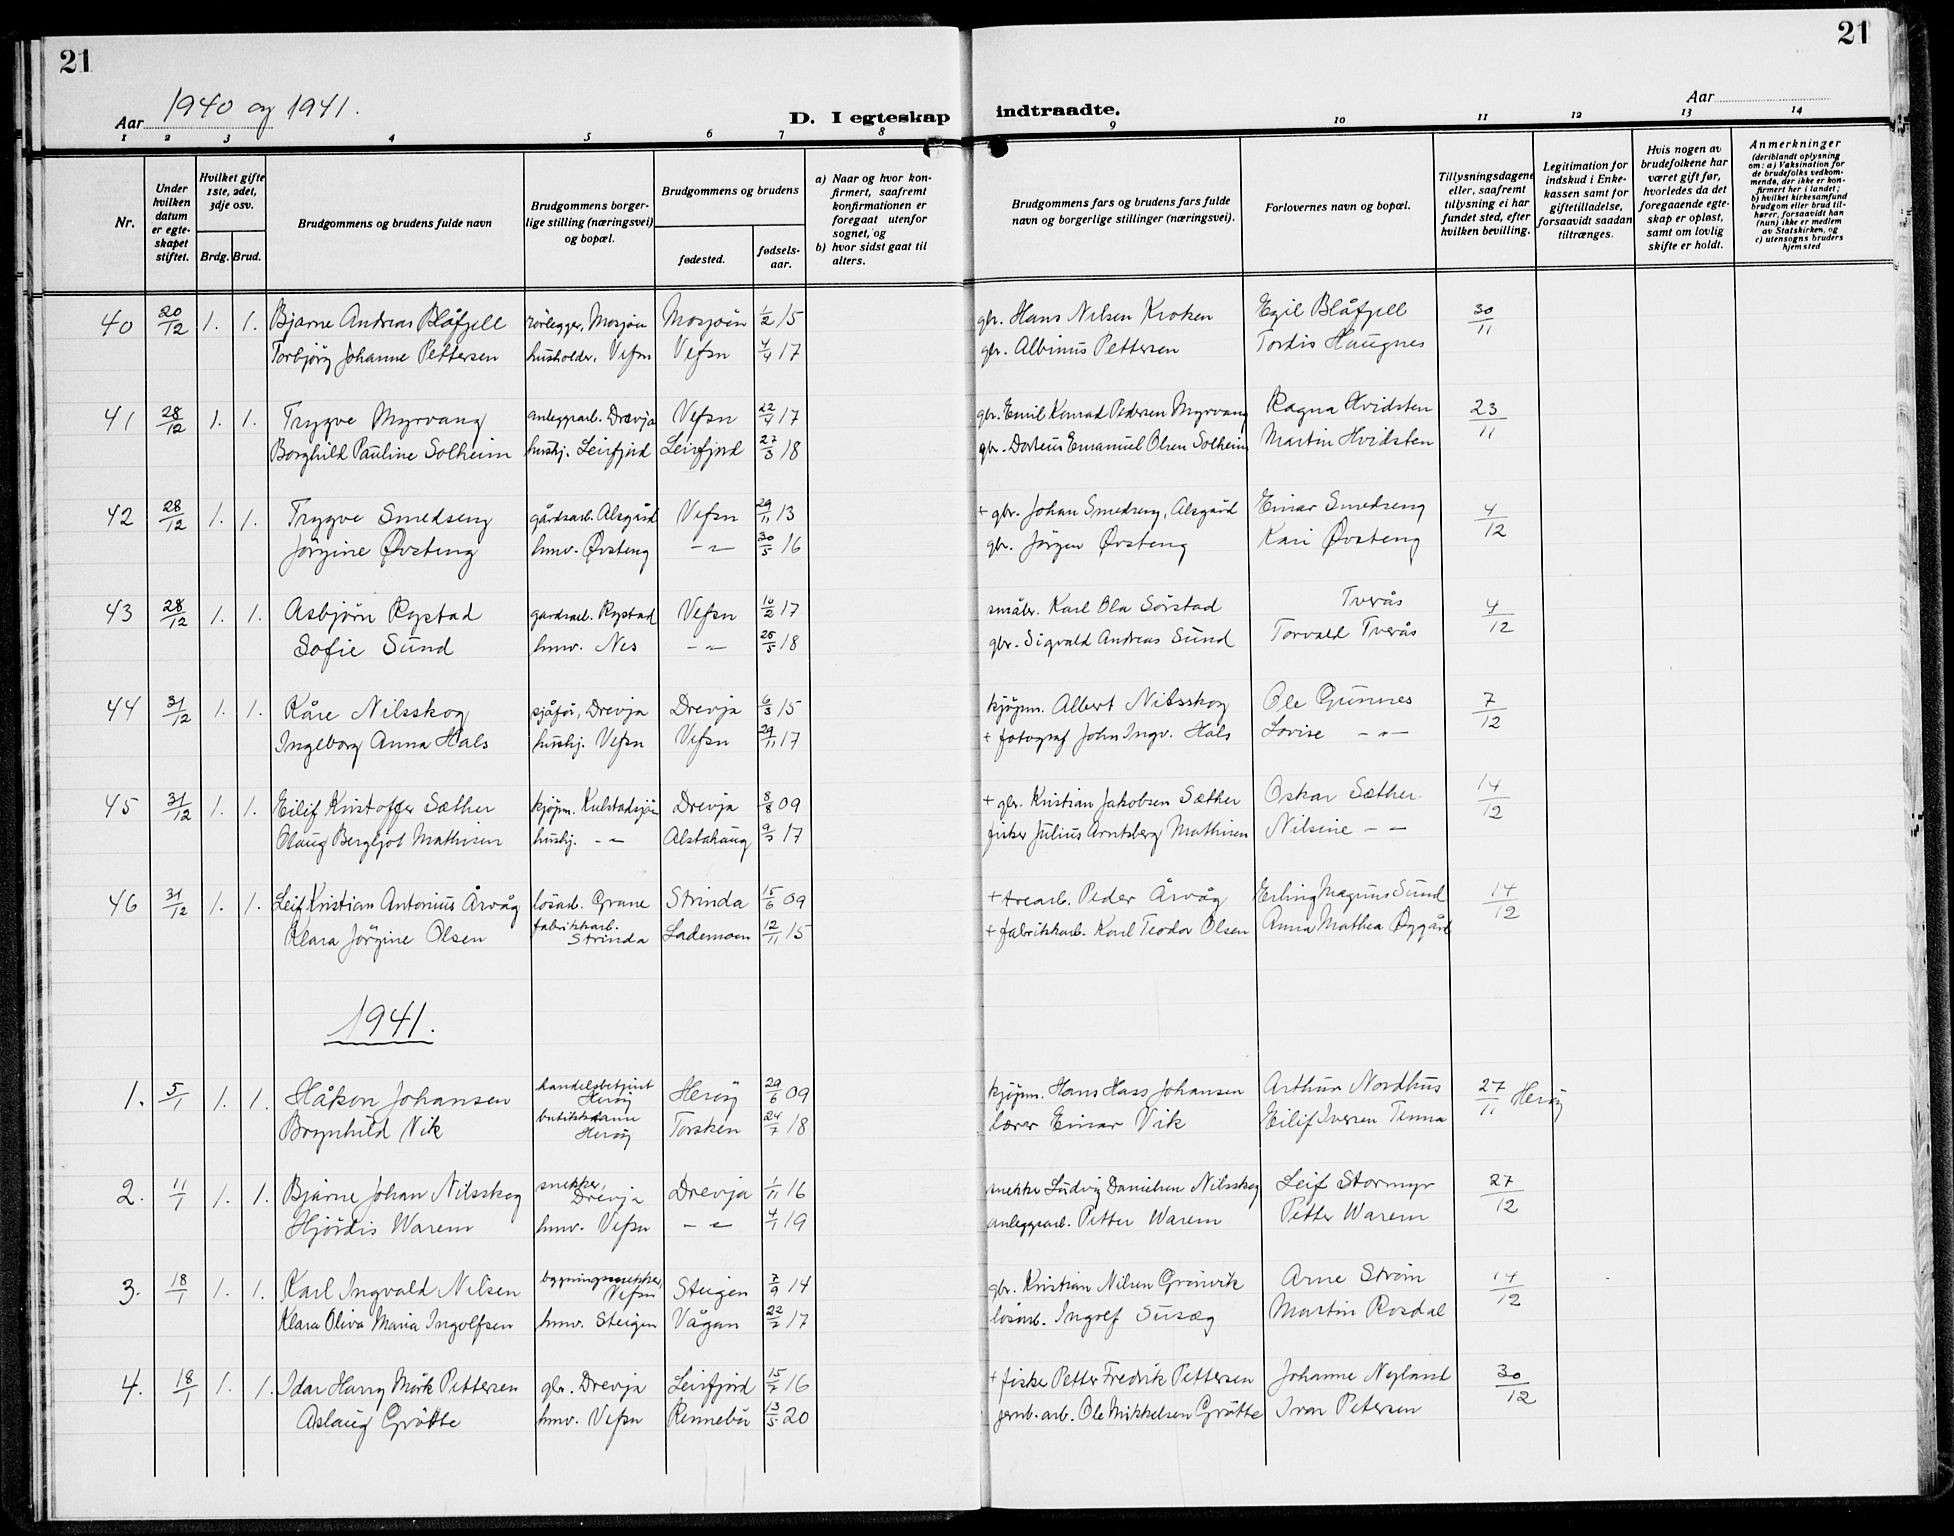 21
21
Aar 1940 og 1941.
D. I egteskap indtraadte.
Aar
1 2 3 4 5 6 7 8 9 10 11 12 13 14
Nr.
Under hvilken datum er egte-skapet stiftet.
Hvilket gifte 1ste, 2det, 3dje osv.
Brdg. Brud.
Brudgommens og brudens fulde navn
Brudgommens borger-lige stilling (næringsvei) og bopæl.
Brudgommens og brudens
fødested.
fødsels-aar.
a) Naar og hvor kon-firmert, saafremt konfirmationen er foregaat utenfor sognet, og
b) hvor sidst gaat til alters.
Brudgommens fars og brudens fars fulde navn og borgerlige stillinger (næringsvei).
Forlovernes navn og bopæl.
Tillysningsdagene eller, saafremt tillysning ei har fundet sted, efter hvilken bevilling.
Legitimation for indskud i Enke-kassen samt for giftetilladelse, forsaavidt saadan tiltrænges.
Hvis nogen av brudefolkene har været gift før, hvorledes da det foregaaende egte-skap er opløst, samt om lovlig skifte er holdt.
Anmerkninger (deriblandt oplysning om: a) Vaksination for de brudefolks vedkom-mende, der ikke er kon-firmert her i landet; b) hvilket kirkesamfund brudgom eller brud til-hører, forsaavidt han (hun) ikke er medlem av Statskirken, og c) utensogns bruders hjemsted
40 20/12 1. 1. Bjarne Andreas Blåfjell rørlegger, Mosjøen Mosjøen 1/2 15 gbr. Hans Nilsen Kroken Egil Blåfjell 30/11
Torbjørg Johanne Pettersen husholder, Vefsn Vefsn 4/4 17 gbr. Albinus Pettersen Tordis Haugnes
41 28/12 1. 1. Trygve Myrvang anleggsarb. Drevja Vefsn 22/4 17 gbr. Emil Konrad Pedersen Myrvang Ragna Hvidsten 23/11
Borghild Pauline Solheim hushj. Leirfjord Leirfjord 27/3 18 gbr. Dorteus Emanuel Olsen Solheim Martin Hvidsten
42 28/12 1. 1. Trygve Smedseng gårdsarb. Alsgård Vefsn 29/11 13 + gbr. Johan Smedseng, Alsgård Einar Smedseng 4/12
Jørgine Øvsteng hmv. Øvsteng -"- 30/5 16 gbr. Jørgen Øvsteng Kari Øvsteng
43 28/12 1. 1. Asbjørn Rystad gardsarb. Rystad Vefsn 10/2 17 småbr. Karl Ola Sørstad Tverås 4/12
Sofie Sund hmv. Nes -"- 25/5 18 gbr. Sigvald Andreas Sund Torvald Tverås
44 31/12 1. 1. Kåre Nilsskog sjåfør, Drevja Drevja 6/3 15 kjøpm. Albert Nilsskog Ole Gunnes 7/12
Ingeborg Anna Hals hushj. Vefsn Vefsn 29/11 17 + fotograf John Ingv. Hals Lovise -"-
45 31/12 1. 1. Eilif Kristoffer Sæther kjøpm. Kulstadsjøen Drevja 8/8 09 + gbr. Kristian Jakobsen Sæther Oskar Sæther 14/12
Olaug Bergljot Mathisen hushj. -"- Alstahaug 9/7 17 fisker Julius Arntsberg Mathisen Nilsine - -
46 31/12 1. 1. Leif Kristian Antonius Årvåg løsarb. Grane Strinda 15/6 09 + trearb. Peder Årvåg Erling Magnus Sund 14/12
Klara Jørgine Olsen fabrikkarb. Strinda Lademoen 12/11 15 + fabrikkarb. Karl Teodor Olsen Anna Mathea Øygård
1941.
1. 5/1 1. 1. Håkon Johansen handelsbetjent Herøy Herøy 29/6 09 kjøpm. Hans Hass Johansen Arthur Nordhus 27/11 Herøy
Brynhild Vik butikkdame Herøy Torsken 24/7 18 lærer Einar Vik Eilif Iversen Tenna
2. 11/1 1. 1. Bjarne Johan Nilsskog snekker, Drevja Drevja 1/11 16 snekke Ludvig Danielsen Nilsskog Leif Stormyr 27/12
Hjørdis Warem hmv. Vefsn -"- 4/1 19 anleggsarb. Petter Warem Petter Warem
3. 18/1 1. 1. Karl Ingvald Nilsen bygningssnekker, Vefsn Steigen 7/9 14 gbr. Kristian Nilsen Grønvik Arne Strøm 14/12
Klara Oliva Maria Ingolfsen hmv. Steigen Vågan 22/7 17 løsarb. Ingolf Susæg Martin Rosdal
4. 18/1 1. 1. Idar Harry Mørk Pettersen gbr. Drevja Leirfjord 15/7 16 + fisker Petter Fredrik Pettersen Johanne Nyland 30/12
Aslaug Grøtte hmv. Vefsn Rennebu 13/5 20 jernb.arb. Ole Mikkelsen Grøtte Ivar Petersen